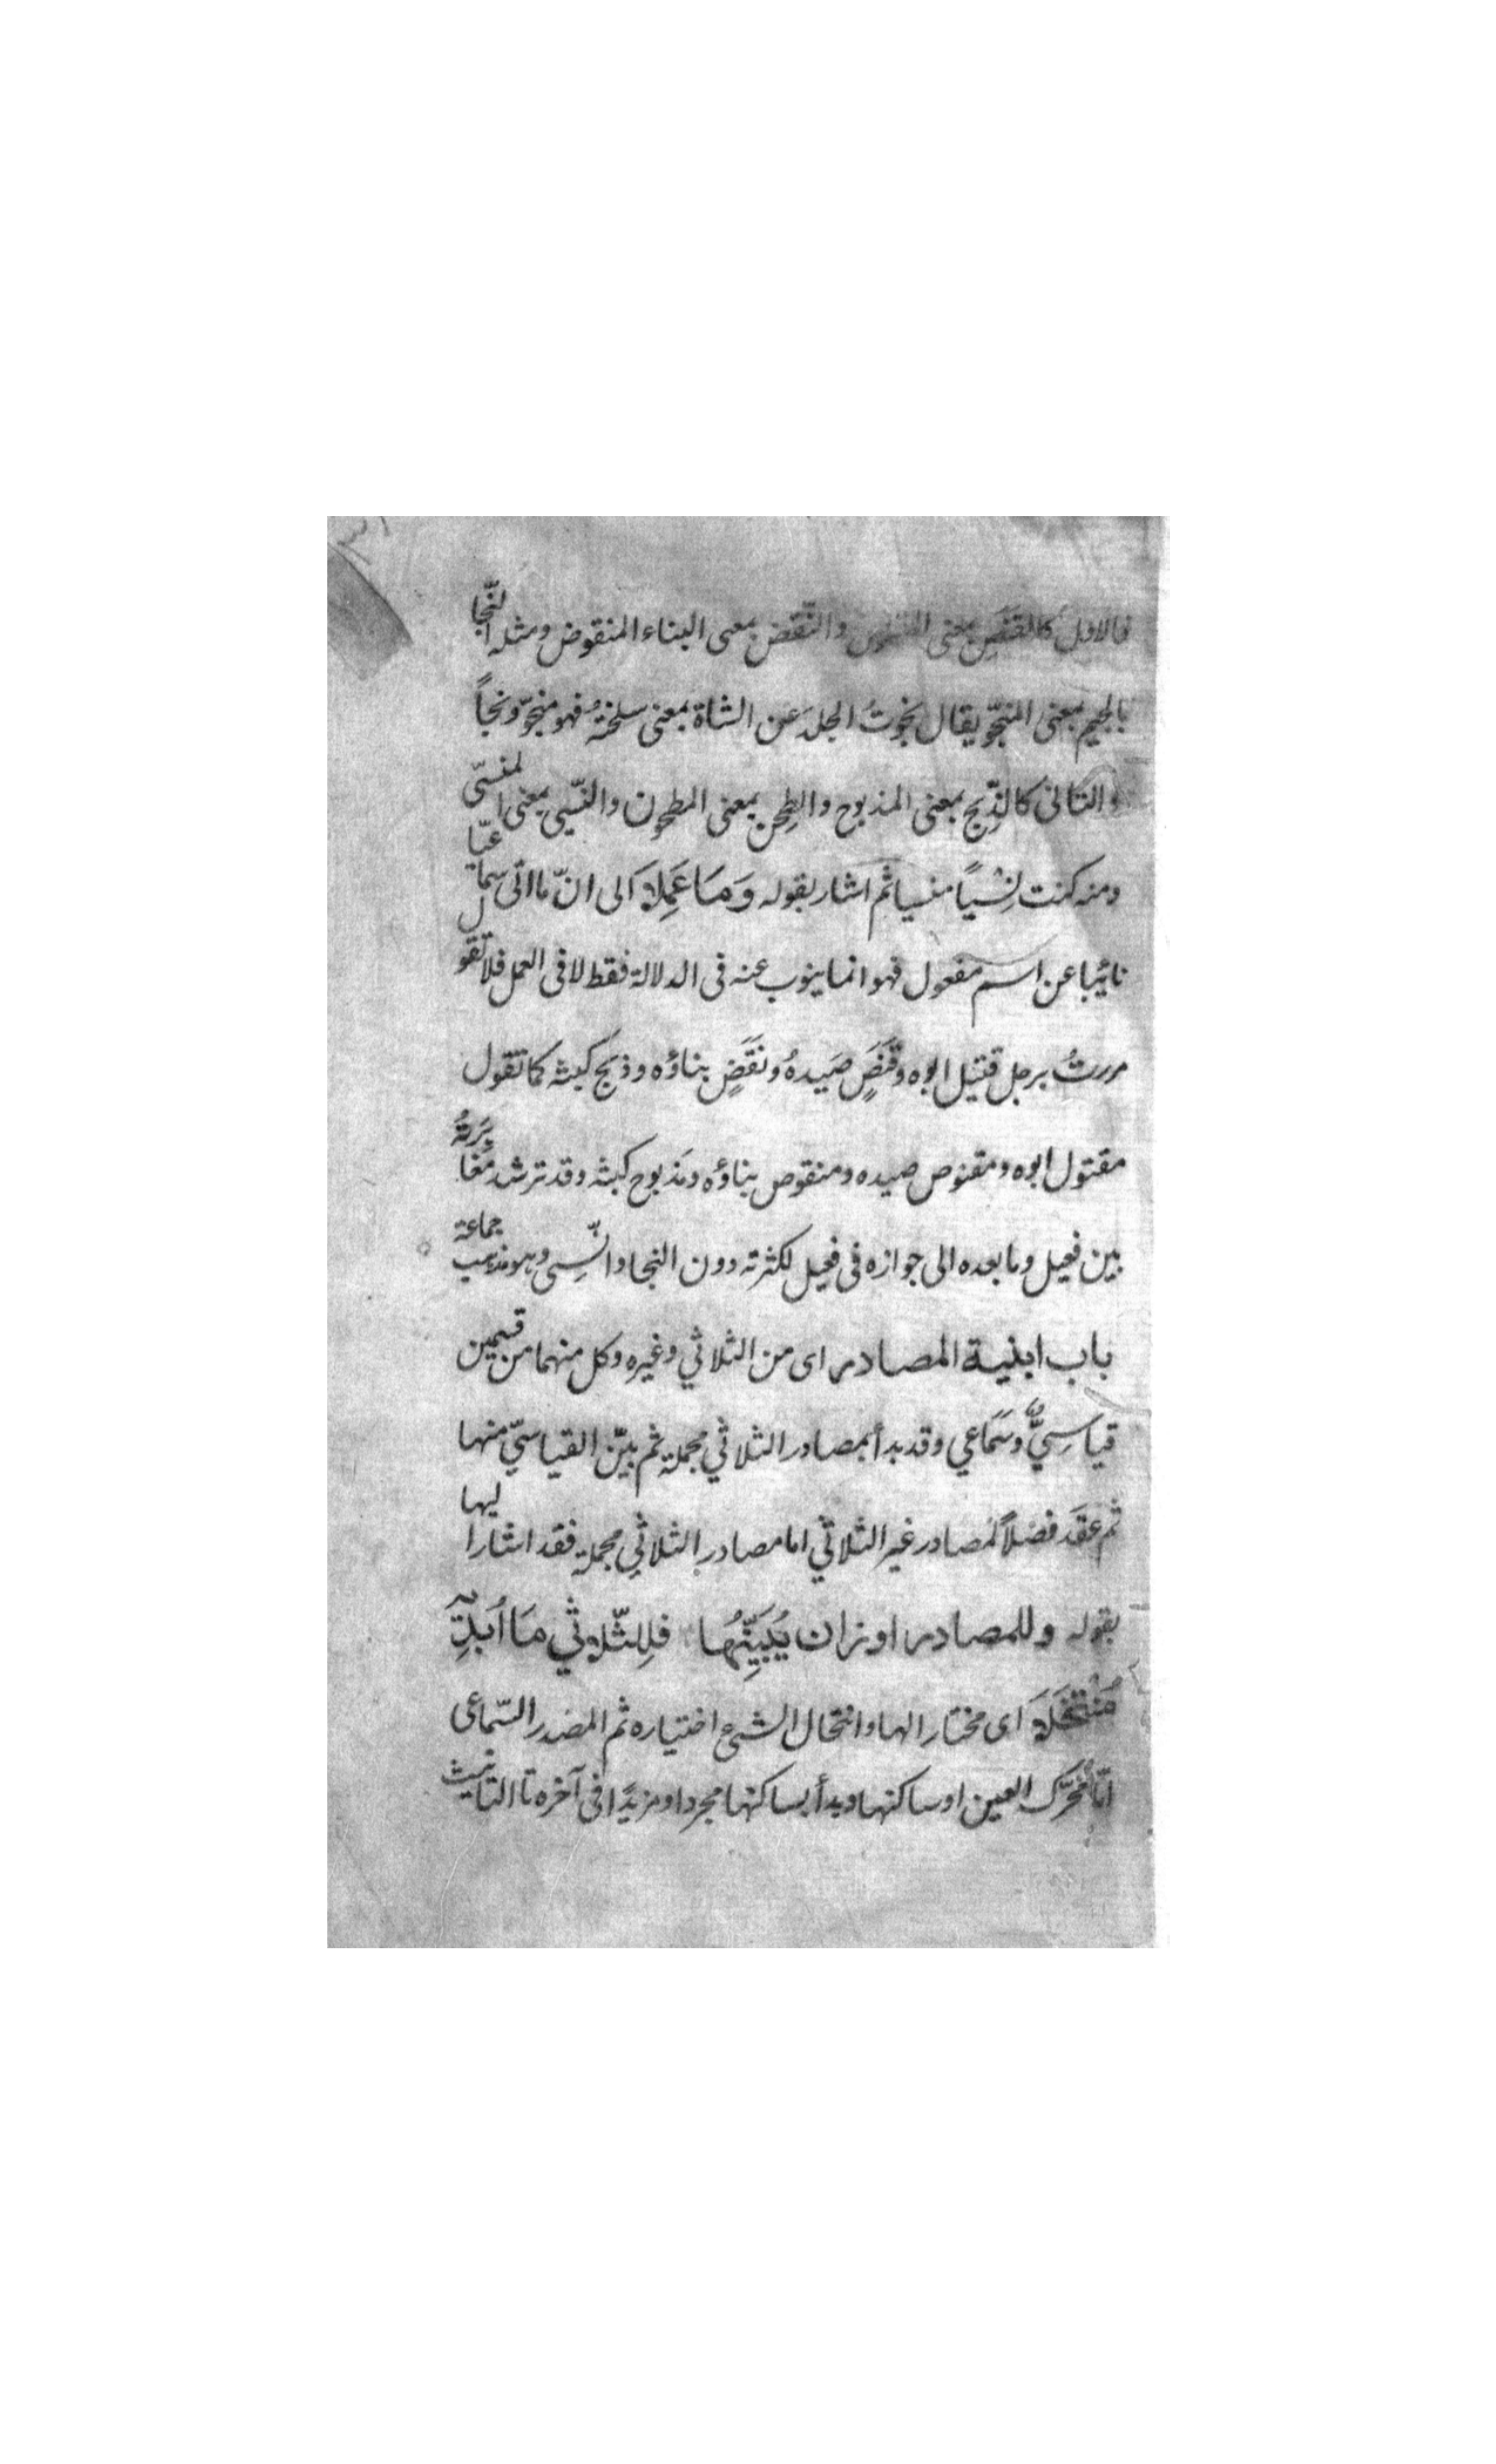 فالاول كالقَنَصِ بمعنى المقنوص والنَّقَض بمعنى البناء المنقوض ومثله النَّجا
بالجيم بمعنى المنجّو يقال نجوتُ الجلدَ عن الشاة بمعنى سلختهُ فهو منجوّ ونجاً
والثانى كالذِّبح بمعنى المذبوح والطِحن بمعنى المطحون والنّسِى بمعنى المنسىّ
ومنه كنت نِسْياً منسيا ثم اشار بقوله وَمَا عَمِلَا الى انّ ما اتى سماعيّا
نائبا عن اسم مفعول فهو انما ينوب عنه فى الدلالة فقط لا فى العمل فلا تقول
مررتُ برجل قتيل ابوه وقَنَصٍ صَيدهُ ونَقَضٍ بناؤه وذبح كبشه كما تقول
مقتول ابوه ومقنوص صيده ومنقوص بناؤه ومذبوح كبشه وقد ترشد مُغايَرَتهُ
بين فعيل وما بعده الى جوازه فى فعيل لكثرته دون النجا والنِّسِى وهو مذهب جماعة
باب ابنية المصادر اى من الثلاثي وغيره وكل منهما من قسمين
قياسِيٌّ وسَمَاعي وقد بدأ بمصادر الثلاثي مجملة ثم بيّن القياسيّ منها
ثم عقَد فصْلاً لمصادر غير الثلاثي اما مصادر الثلاثي مجملة فقد اشار اليها
بقوله وللمصادر اوزان يُبَيِّنُهَا فلِلثّلاثي مَا اُبْدِيهِ
مُنْتَخَلَا اى مختارا لها وانتخال الشئ اختياره ثم المصْدر السّماعى
امّا مُحَرَّك العين او ساكنها وبدأ بساكنها مجردا ومزيدًا فى آخره تا التانيث